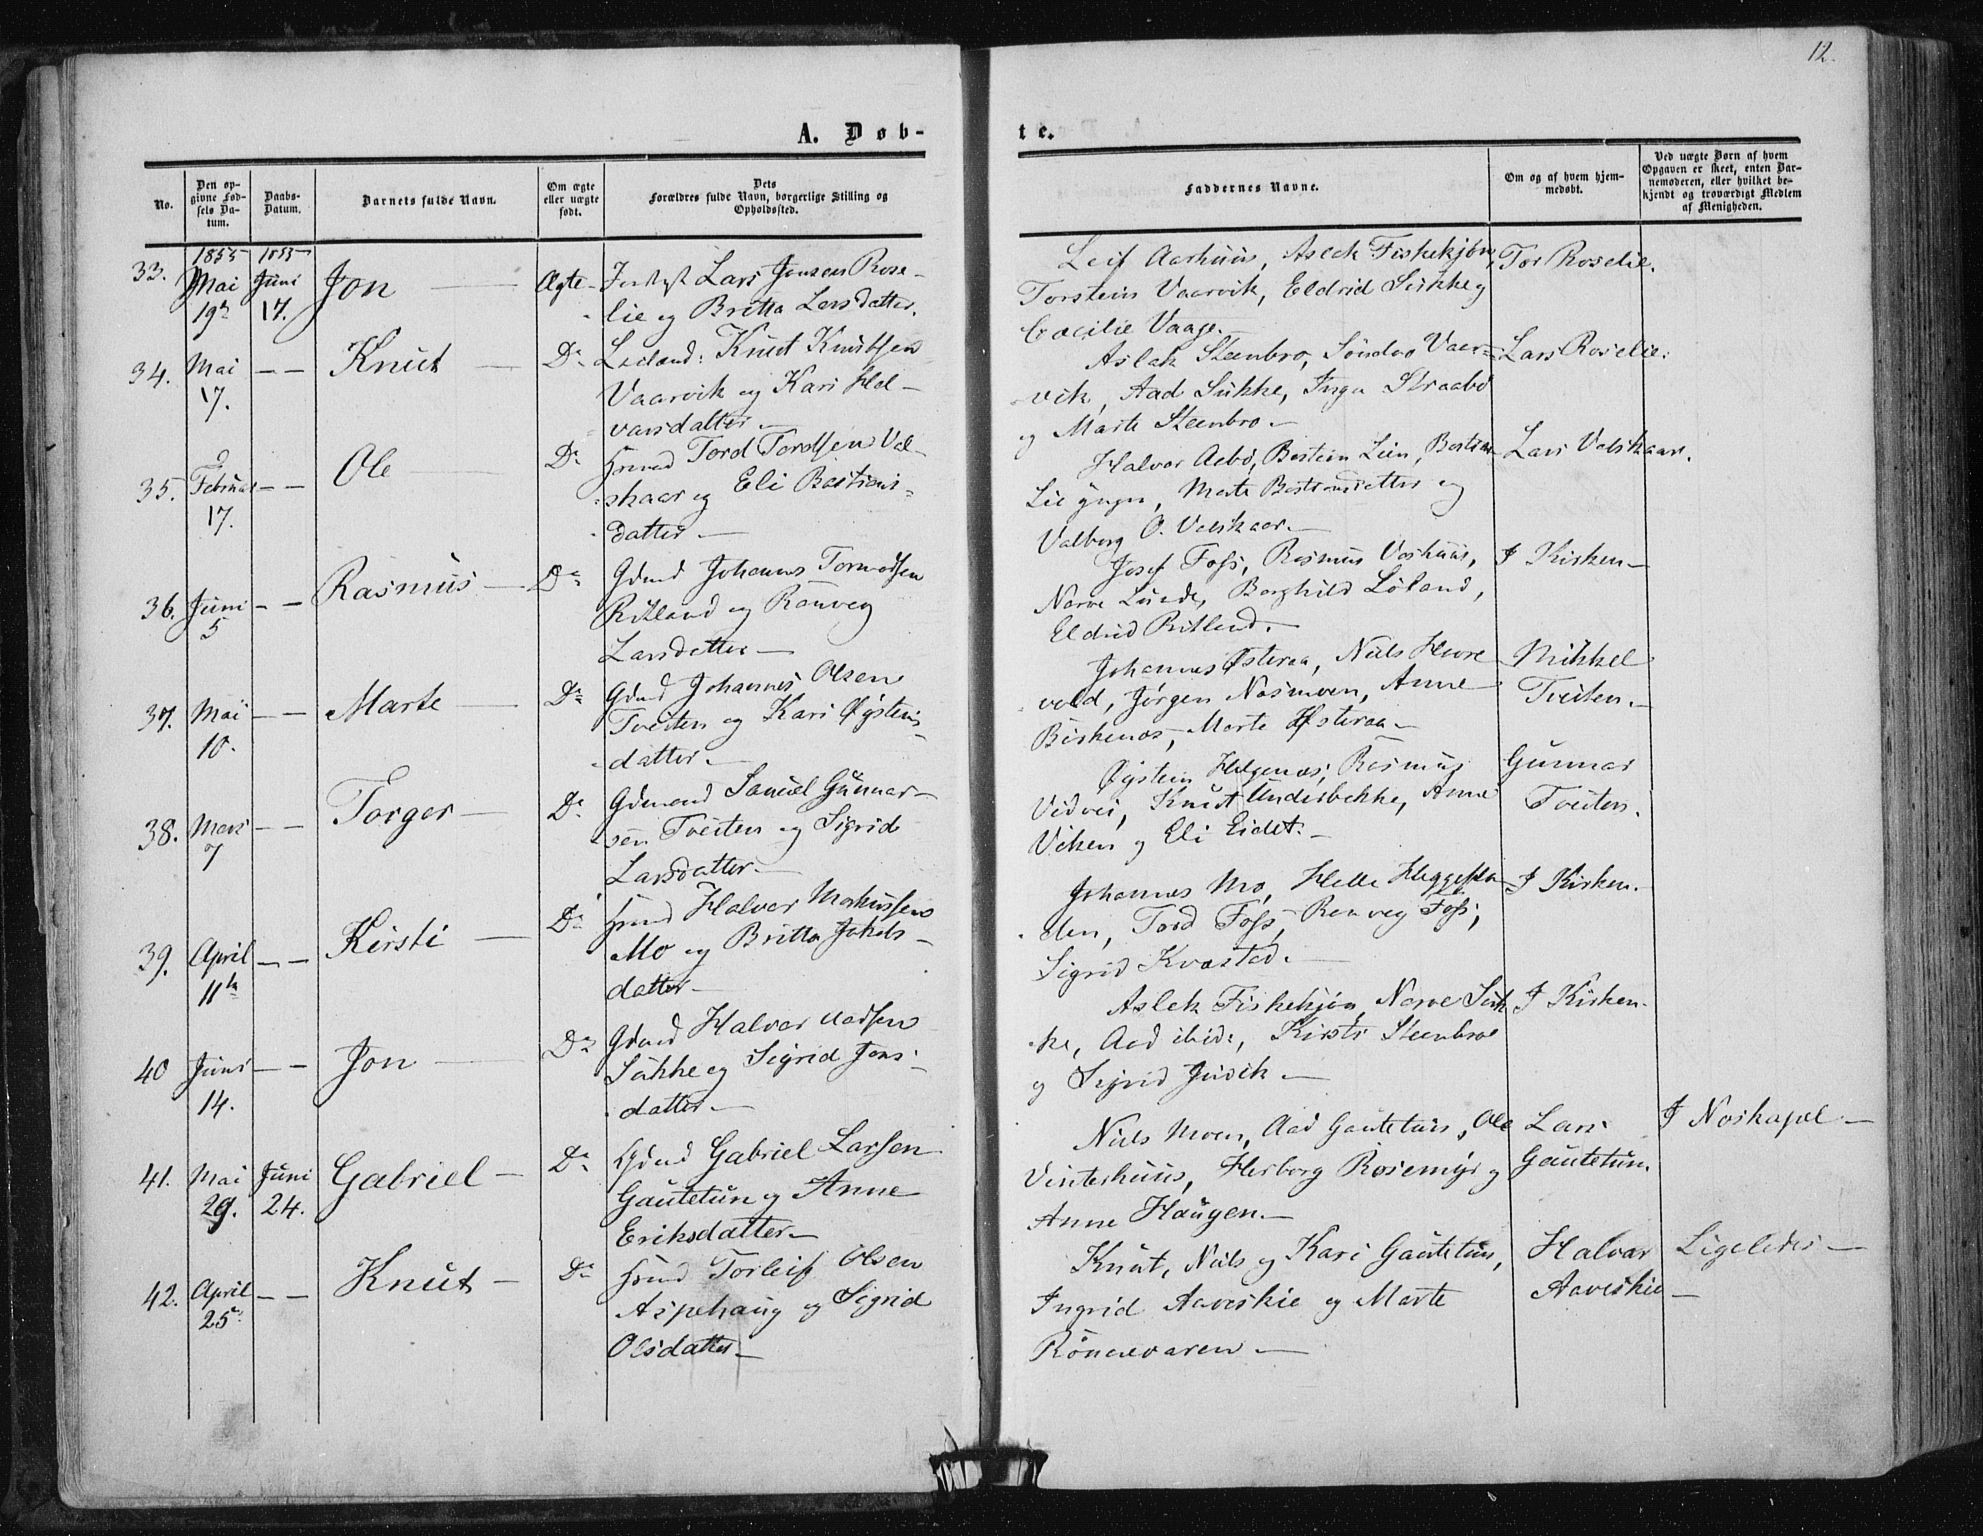 12.
A. Døb-
te.
No.
Den op-
givne Fød-
sels Da-
tum.
Daabs-
Datum.
Barnets fulde Navn.
Om ægte
eller uægte
født.
Dets
Forældres fulde Navn, borgerlige Stilling og
Opholdssted.
Faddernes Navne.
Om og af hvem hjem-
medøbt.
Ved uægte Børn af hvem
Opgaven er skeet, enten Bar-
nemoderen, eller hvilket be-
kjendt og troværdigt Medlem
af Menigheden.
33.
1855
Mai
19de
1855
Juni
17.
Jon
Ægte
Lars Jonsen Rose-
lie og Britta Larsdatter.
Leif Aarhuus, Aslak Fiskekjøn,
Torstein Vaarvik, Eldrid Sukke og
Cæcilie Vaage.
Tor Roselie.
34.
Mai
17.
Knut
Do
Knut Knutsen
Vaarvik og Kari Hal-
varsdatter
Aslak Steenbro, Söndvo Vaar-
vik, Aad Sukke, Inga Straabö
og Marte Steenbro.
Lars Roselie.
35.
Februar
17.
Ole
Do
Gmd Tord Tordsen Val-
skaar og Eli Bastians-
datter
Halvor Aebö, Bastian Lien, Bastian
Lie yngre, Marte Bastiansdatter og
Valborg O. Valskaar.
Lars Valskaar.
36.
Juni
5
Rasmus
Do
Gdmd Johannes Tormodsen
Ritland og Ranveg
Larsdatter
Josef Foss, Rasmus Vashuus,
Narve Lunde, Borghild Løland,
Eldrid Ritland.
I Kirken
37.
Mai
10.
Marte
Do
Gdmd Johannes Olsen
Tveiten og Kari Øysteins-
datter
Johannes Østeraa, Niels Herre
vold, Jørgen Næsmoen, Anne
Birkenæs, Marte Østeraa
Mikkel
Tveiten.
38.
Mars
7
Torger
Do
Gdmand Samuel Gunnar-
sen Tveiten og Sigrid
Larsdatter
Øystein Helgenæs, Rasmus
Vidvei, Knut Underbakke, Anne
Viken og Eli Eidet.
Gunnar
Tveiten.
39.
April
11te
Kirsti
Do
Halvor Markussen
Mo og Britta Jakobs-
datter
Johannes Mo, Helle Heggesta-
den, Tord Foss, Ranveg Foss,
Sigrid Kvæstad.
I Kirken.
40
Juni
14.
Jon
Do
Gdmd Halvor Aadsen
Sukke og Sigrid Jons-
datter
Aslak Fiskekjön, Narve Suk-
ke, Aad ibid:, Kirsti Steenbroe
og Sigrid Juvik
I Kirken
41.
Mai
29.
Juni
24.
Gabriel
Do
Gdmd Gabriel Larsen
Gautetun og Anne
Eriksdatter
Niels Moen, Aad Gautetun, Ole
Vinterhuus, Herborg Rosemyr og
Anne Haugen.
Lars
Gautetun.
I Næskapel
42.
April
25
Knut
Do
Torleif Olsen
Aspehaug og Sigrid
Olsdatter
Knut, Niels og Kari Gautetun,
Ingrid Aaveskie og Marte
Rönnevaren
Halvar
Aaveskie
Ligeledes